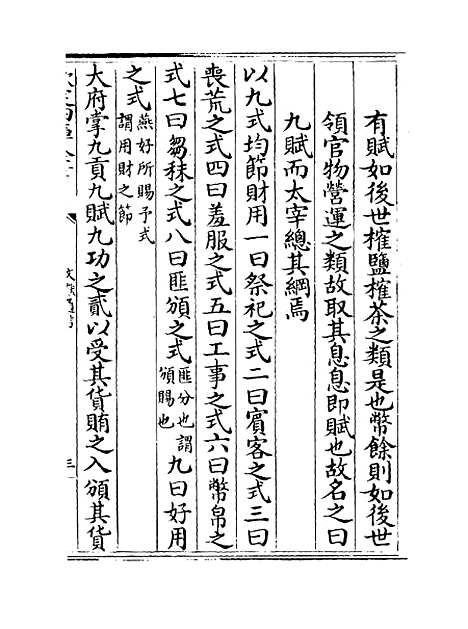 有賦如後世榷鹽榷茶之類是也幣餘則如後世
領官物營運之類故取其息息即賦也故名之曰
九賦而太宰總其綱焉
以九式均節財用一曰祭祀之式二曰賓客之式三曰
喪荒之式四曰羞服之式五曰工事之式六曰幣帛之
式七曰芻秣之式八曰匪頒之式匪分也謂頒賜也九曰好用
之式燕好所賜予式謂用財之節
大府掌九貢九賦九功之貳以受其貨賄之入頒其貨